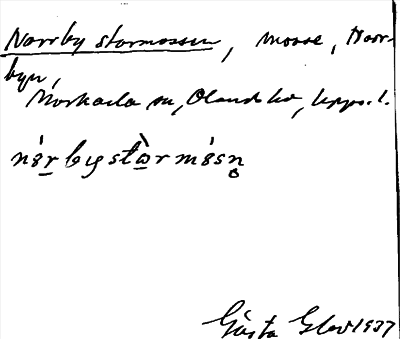 Norrby stormossen, mosse, Norr-
byn,
Morkarla sn, Olands hd, Upps. l.
nórby stòrmósn̥
Gösta 1937